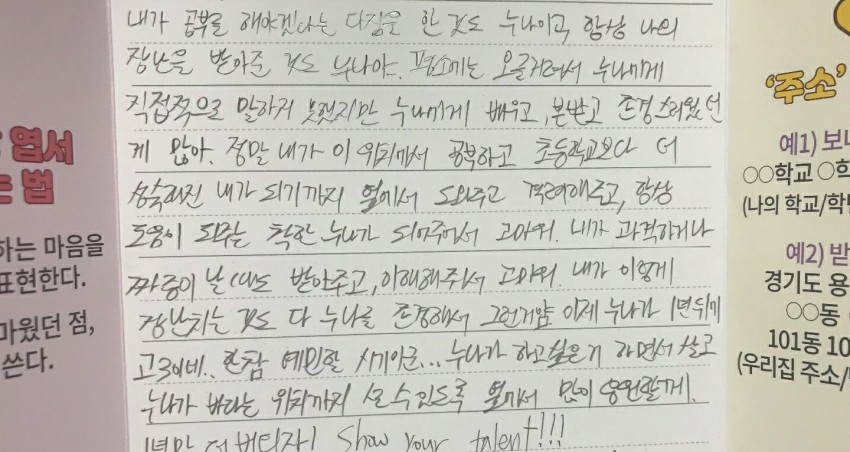 내가 공부를 해야겠다는 다짐을 한 것도 누나이고, 항상 나의
장난을 받아준 것도 누나야. 평소에는 오글거려서 누나에게
직접적으로 말하지 못했지만 누나에게 배우고, 본받고 존경스러웠던
게 많아. 정말 내가 이 위치에서 공부하고 초등학교보다 더
성숙해진 내가 되기까지 옆에서 도와주고 격려해주고, 항상
도움이 되주는 착한 누나가 되어주어서 고마워. 내가 과격하거나
짜증이 날 때도 받아주고, 이해해줘서 고마워. 내가 이렇게
장난치는 것도 다 누나를 존경해서 그런거얌 이제 누나가 1년 뒤에
고3이네.. 한참 예민할 시기이군... 누나가 하고싶은거 하면서 살고
누나가 바라는 위치까지 갈 수 있도록 옆에서 많이 응원할게.
1년만 더 버티자! Show your talent!!!
엽서
는 법
하는 마음을
표현한다.
마웠던 점,
쓴다.
'주소'
예1) 보내
○○학교 ○학
(나의 학교/학년
예2) 받
경기도 용
○○동
101동 10
(우리집 주소/